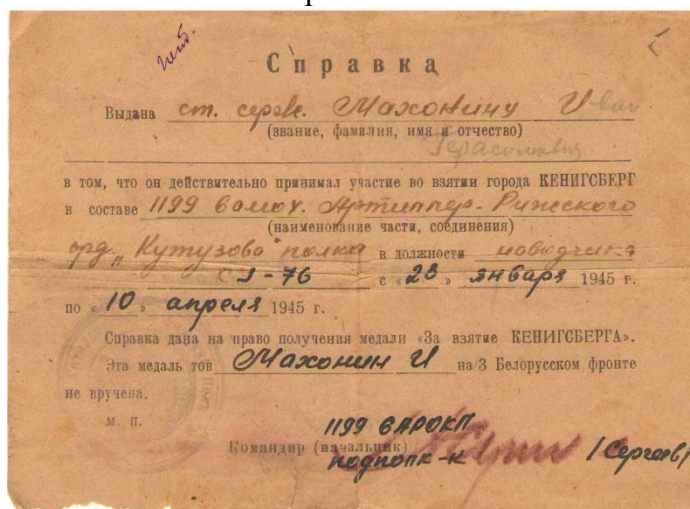 Справка
Выдана ст. серж. Махонину Иван
(звание, фамилия, имя и отчество)
Герасимович
в том, что он действительно принимал участие во взятии города КЕНИГСБЕРГ
в составе 1199 самох. Артиллер. Рижского
(наименование части, соединения)
орд. „Кутузова" полка в должности наводчика
с «23» января 1945 г.
по «10» апреля 1945 г.
Справка дана на право получения медали «За взятие КЕНИГСБЕРГА».
Эта медаль тов Махонин И на 3 Белорусском фронте
не вручена.
м. п.
1199
Командир (начальник)
подполк-к (Сергеев)